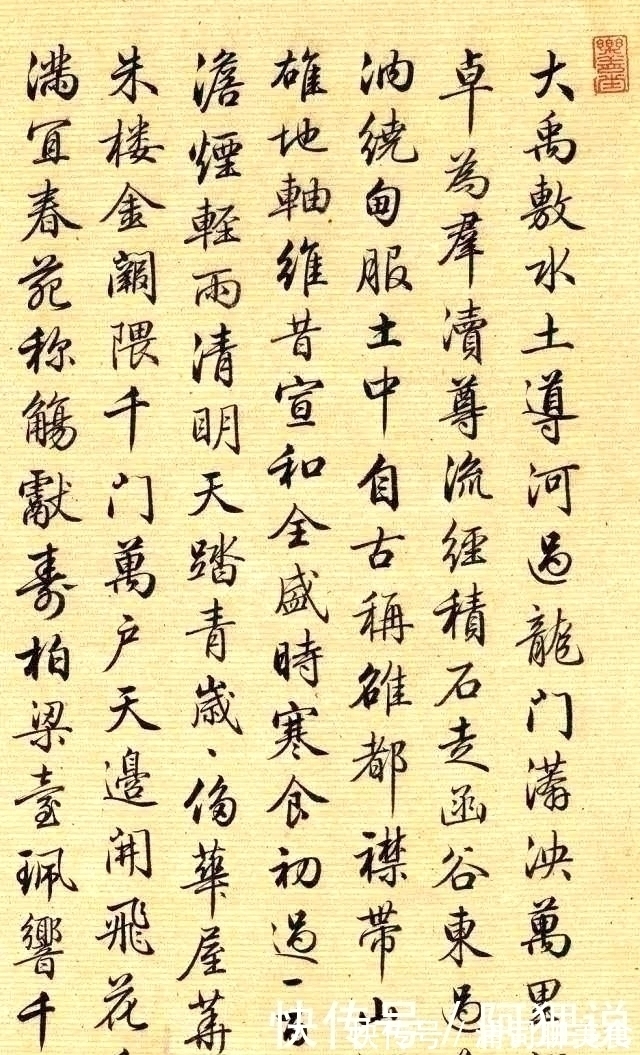 大禹敷水土導河過龍门漭泱萬里
卓為羣瀆尊流經積石走函谷東過
汭繞甸服土中自古稱雒都襟帶
雄地軸維昔宣和全盛時寒食初過一
澹煙輕雨清明天踏青歲〻侈華屋
朱楼金闕隈千门萬户天邊開飛花
滿宜春苑称觴獻壽柏梁臺珮響千
快传号//阿狸说